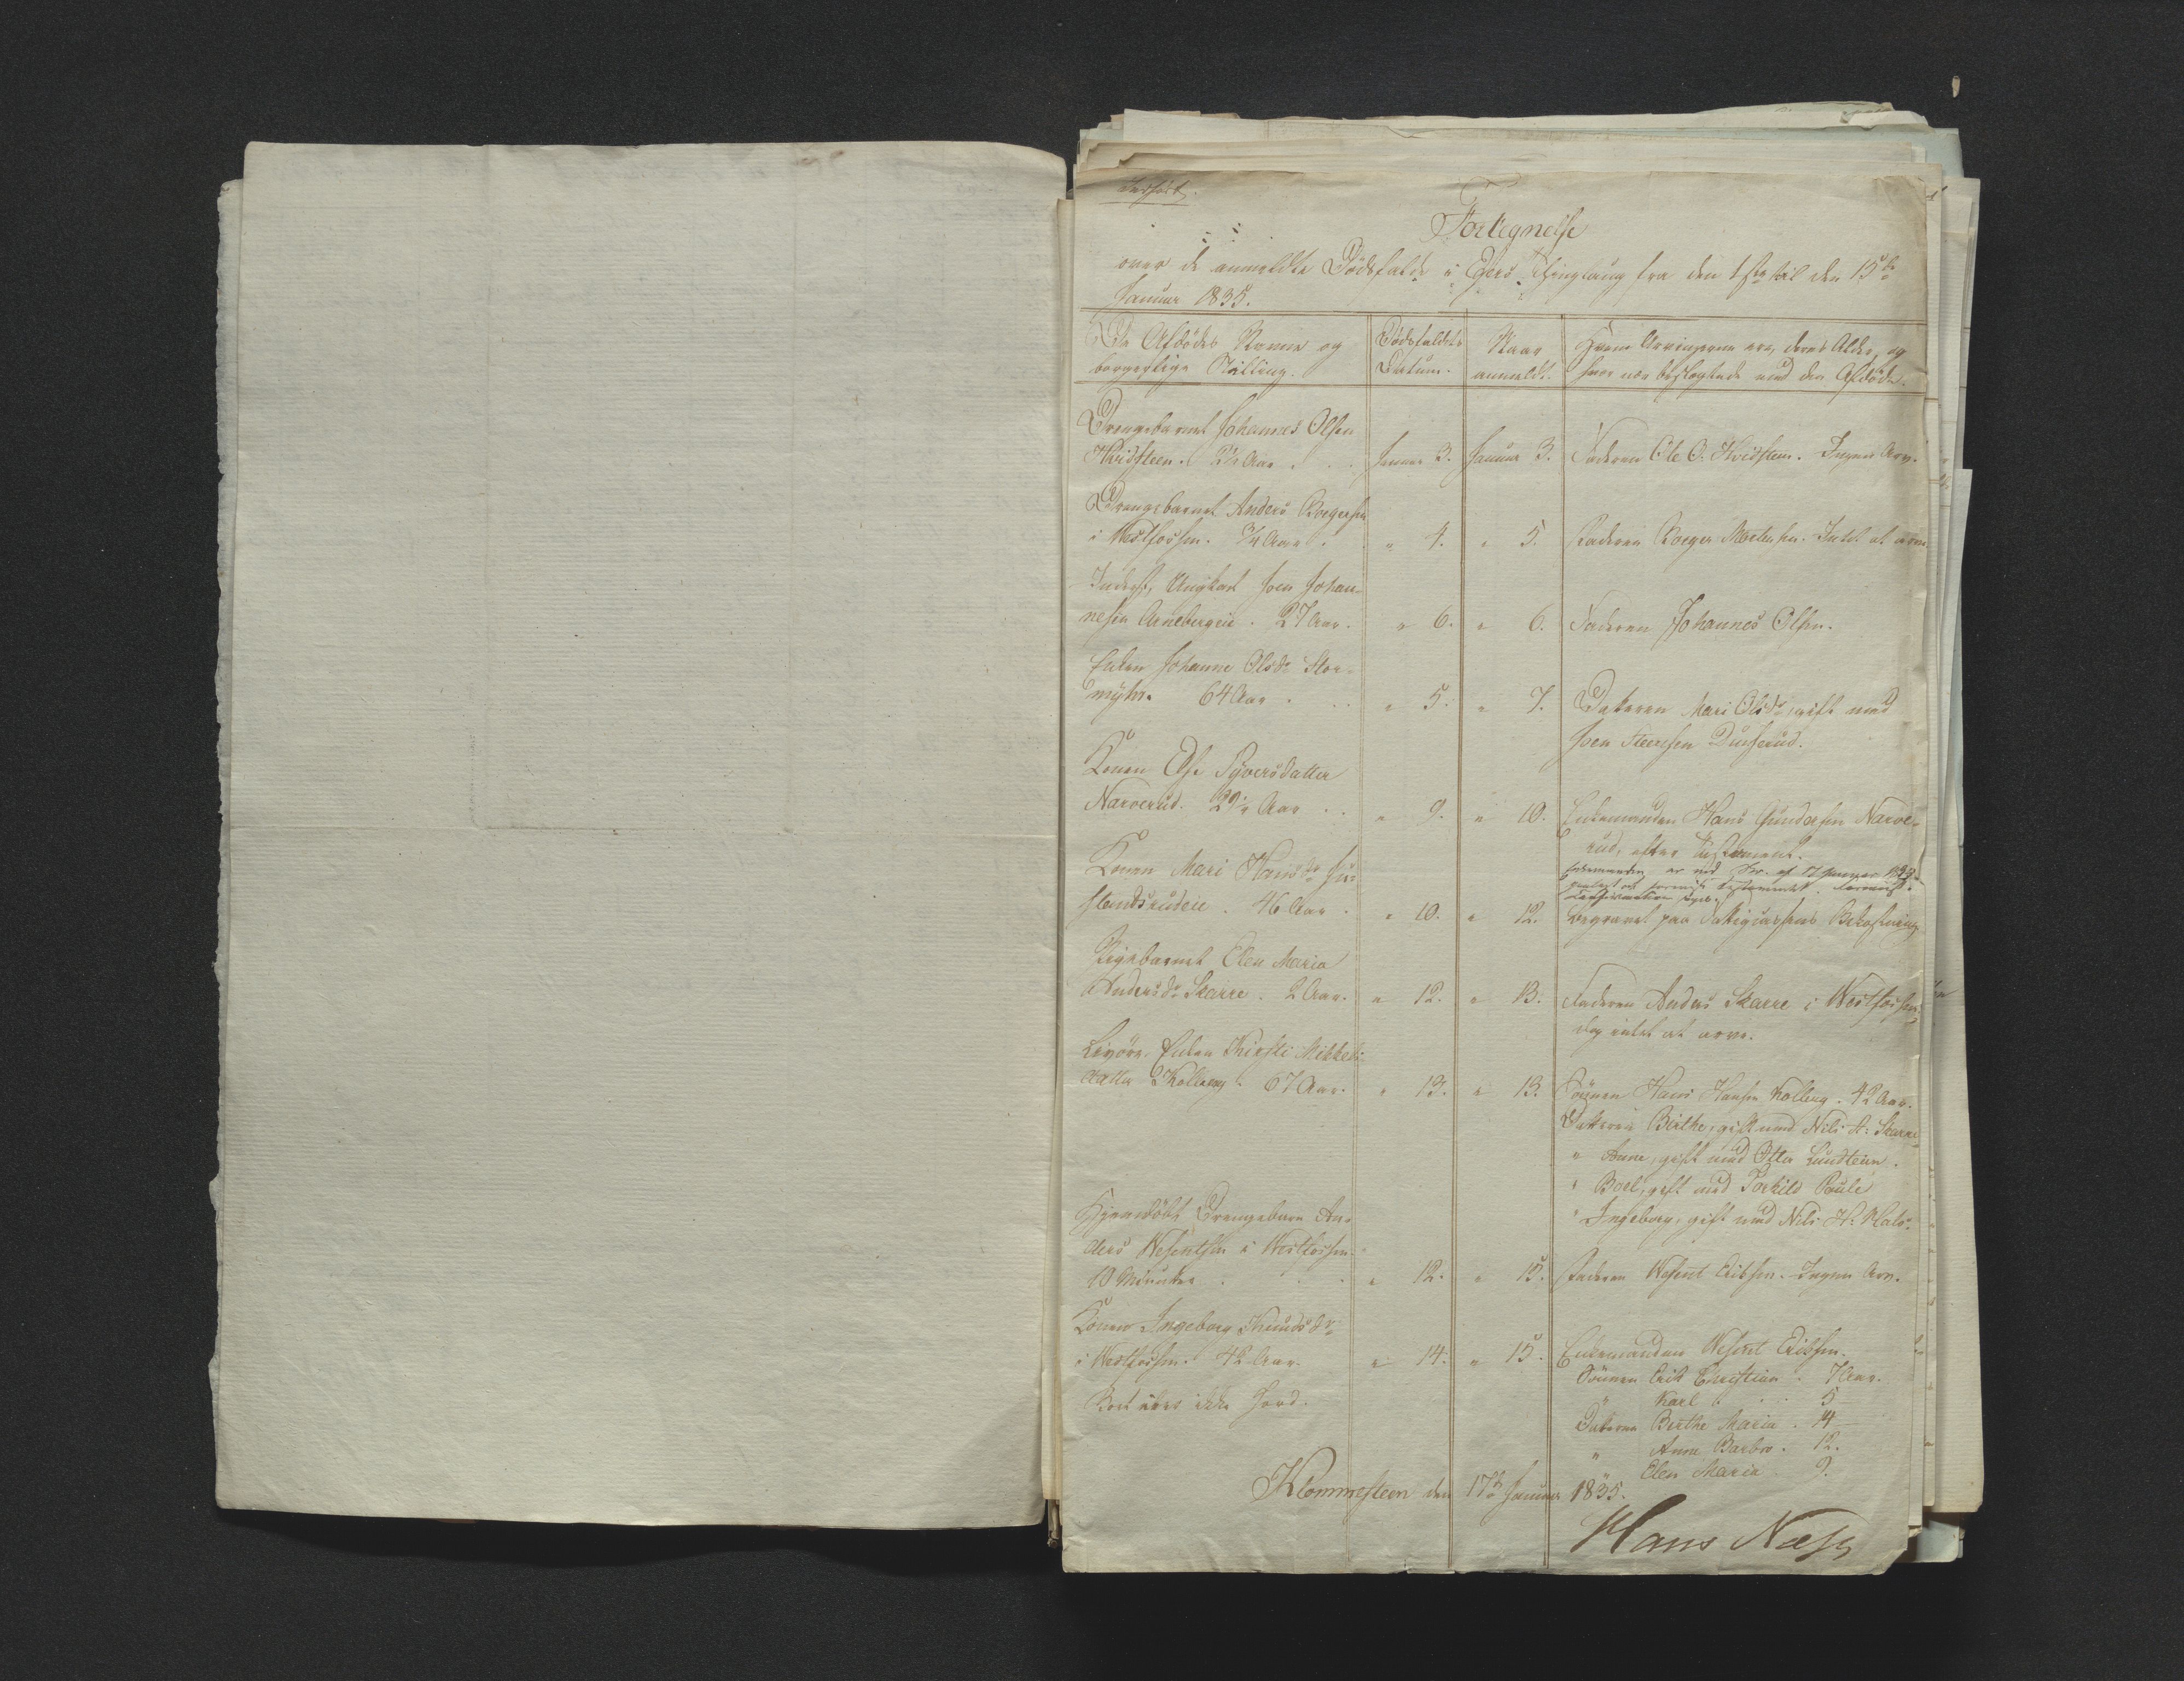 Indført.
Fortegnelse
over de anmeldte Dödsfald i Egers Thinglaug fra den 1ste til den 15de
Januar 1835.
De Afdödes Navne og
borgerlige Stilling.
Dødsfaldets
Datum.
Naar
anmeldt.
Hvem Arvingerne ere, deres Alder, og
hvor nær beslægtede med den Afdöde.
Drengebarnet Johannes Olsen
Hvidsteen. 2½ Aar.
Januar 3.
Januar 3.
Faderen Ole O. Hvidsteen. Ingen Arv.
Drengebarnet Anders Borgersen
i Westfossen. ¾ Aar.
" 4.
" 5.
Faderen Borger Mortensen. Intet at arve.
Inderst, Ungkarl Joen Johan-
nesen Arnebergeie. 27 Aar.
" 6.
" 6.
Faderen Johannes Olsen.
Enken Johanne Olsdr Stor-
myhr. 64 Aar.
" 5.
" 7.
Datteren Mari Olsdr, gift med
Joen Steensen
Konen Else Syversdatter
Narverud. 29½ Aar.
" 9.
" 10.
Enkemanden Hans Gundersen Narve-
rud, efter Testament.
Enkemanden er ved af 17 Januar 1835
Konen Mari Hansdr
46 Aar.
" 10.
" 12.
Begravet paa Fattigcassens Bekostning
Pigebarnet Elen Maria
Andersdr Skarre. 2 Aar.
" 12.
" 13.
Faderen Anders Skarre i Westfossen,
dog intet at arve.
Enken Kirsti Mikkels-
datter Kolberg. 67 Aar.
" 13.
" 13.
Sönnen Hans Hansen Kolberg. 42 Aar.
Datteren Birthe, gift med Nils H. Skarre
" Anne, gift med Otto Lundteien.
" Boel, gift med Torkild Poule
" Ingeborg, gift med Nils H. Hals.
Hjemmedöbt Drengebarn An-
ders Wesentsen i Westfossen
10 Minuter
" 12.
" 15.
Faderen Wesent Eriksen. Ingen Arv.
Konen Ingeborg Knudsdr
i Westfossen. 42 Aar.
Boet eier ikke Jord.
" 14.
" 15.
Enkemanden Wesent Eriksen.
Sönnen Erik Christian. 7 Aar.
" Karl. 5
Datteren Berthe Maria. 14
" Anne Barbro. 12.
Elen Maria. 9.
Klommesteen den 17de Januar 1835.
Hans Næss